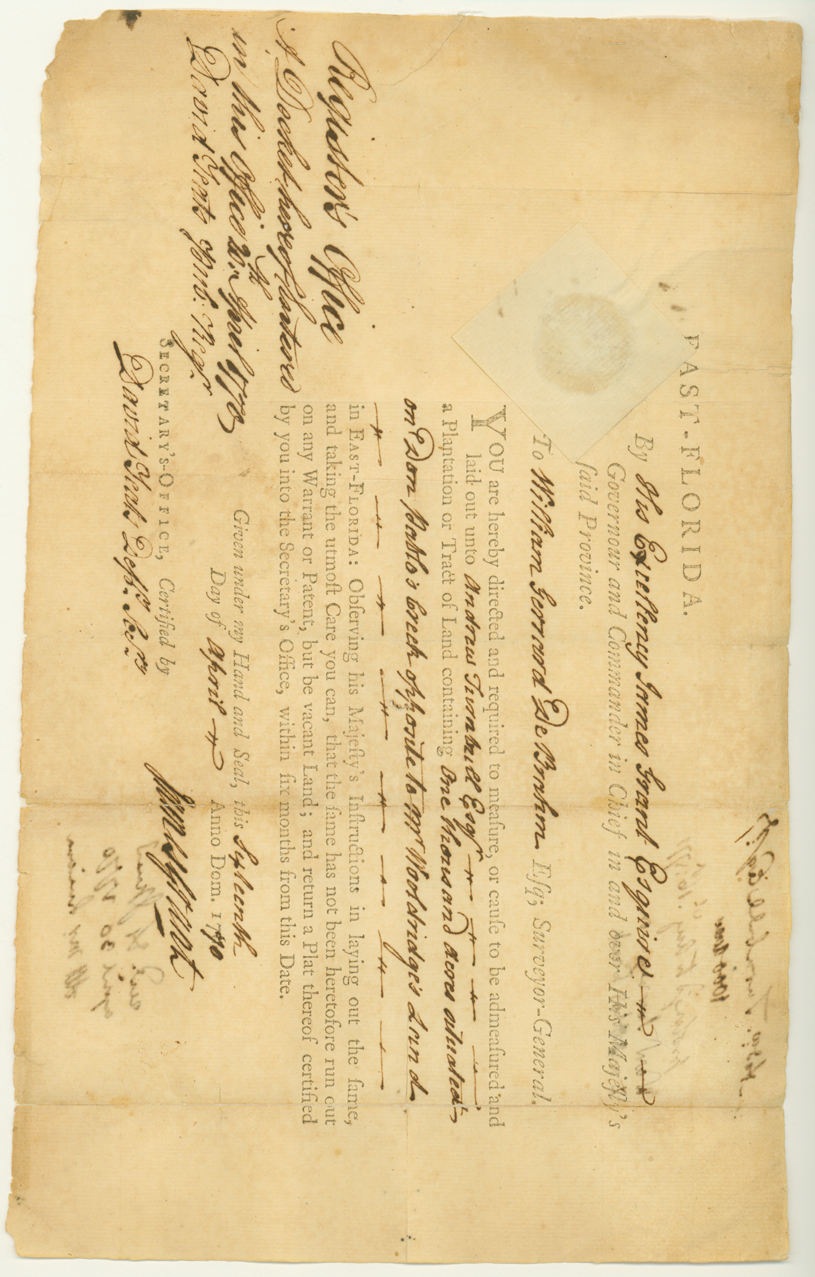 EAST-FLORIDA.
By His Excellency James Grant Esquire
Governour and Commander in Chief in and over His Majesty's
said Province.
To William Gerrard De Brahm Esq; Surveyor-General.
YOU are hereby directed and required to measure, or cause to be admeasured and
laid out unto Andrew Turnbull Esqr
a Plantation or Tract of Land containing One thousand acres situated
on Don Pablo's Creek opposite to Mr Wooldridge's Land
in EAST-FLORIDA: Observing his Majesty's Instructions in laying out the same,
and taking the utmost Care you can, that the same has not been heretofore run out
on any Warrant or Patent, but be vacant Land; and return a Plat thereof certified
by you into the Secretary's Office, within six months from this Date.
Given under my Hand and Seal, this Sixteenth
Day of April Anno Dom. 1770
James Grant
SECRETARY'S-OFFICE, Certified by
David Yeats Depy. Secry
Register's Office
A Docket hereof Entered
in this Office 20th April 1770
David Yeats